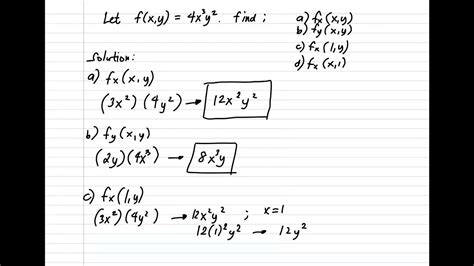 Let f(x,y) = 4x³y². find ;
a) fx (x,y)
b) fy (x,y)
c) fx (1,y)
d) fx (x,1)
Solution:
a) fx (x,y)
(3x²) (4y²) → 12x²y²
b) fy (x,y)
(2y)(4x³) → 8x³y
c) fx (1,y)
(3x²)(4y²) → 12x²y² ; x=1
12(1)²y² → 12y²